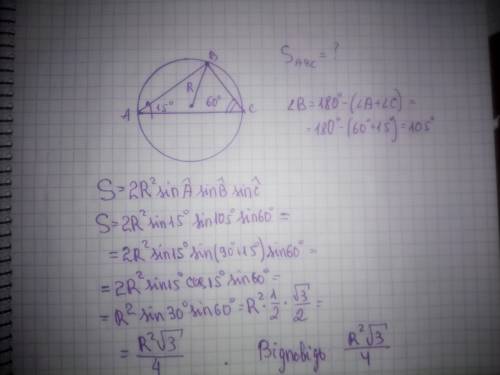 B
S_ABC = ?
R
A 15° 60° C
∠B = 180° - (∠A + ∠C) =
= 180° - (60° + 15°) = 105°
S = 2R² sin Â sin B̂ sin Ĉ
S = 2R² sin 15° sin 105° sin 60° =
= 2R² sin 15° sin (90° + 15°) sin 60° =
= 2R² sin 15° cos 15° sin 60° =
= R² sin 30° sin 60° = R² · 1/2 · √3/2 =
= R²√3/4 . Відповідь R²√3/4